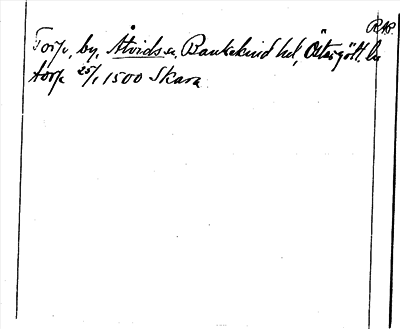 RAP.
Torp, by, Åtvids sn, Bankekind hd, Östergötl. län
torp 25/1 1500 Skara